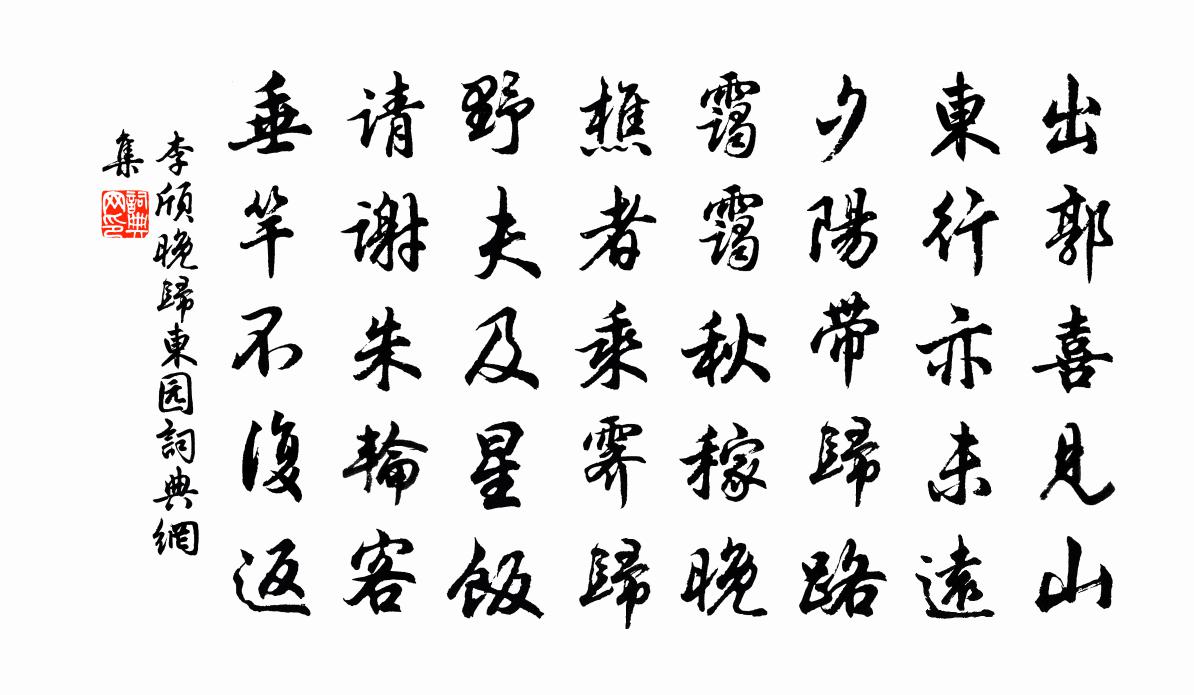 出郭喜見山
東行亦未遠
夕陽带歸路
靄靄秋稼晚
樵者乘霽歸
野夫及星飯
请謝朱輪客
垂竿不復返
李頎晚歸東园詞典網
集
詞典
网印